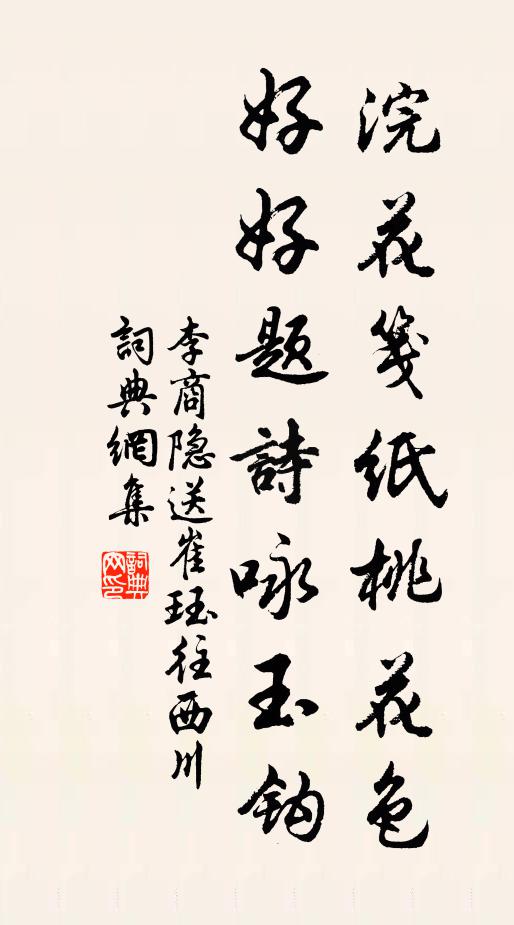 浣花箋纸桃花色
好好題詩咏玉鈎
李商隐送崔珏往西川
詞典網集
詞典网印